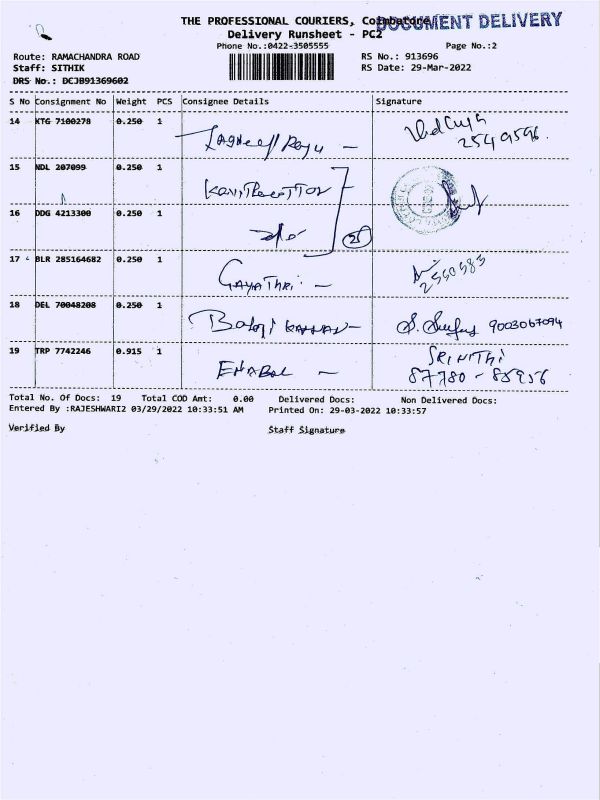 THE PROFESSIONAL COURIERS, Coimbatore
DOCUMENT DELIVERY
Delivery Runsheet - PC2
Phone No.:0422-3505555
Page No.:2
Route: RAMACHANDRA ROAD
RS No.: 913696
Staff: SITHIK
RS Date: 29-Mar-2022
DRS No.: DCJB91369602
S No Consignment No Weight PCS Consignee Details Signature
14 KTG 7100278 0.250 1
2549596.
15 NDL 207099 0.250 1
16 DDG 4213300 0.250 1
25
17 BLR 285164682 0.250 1 GAYATHRI - 2550583
18 DEL 70048208 0.250 1 Balaji KANNAN - 9003067094
19 TRP 7742246 0.915 1 - SRINITHI
87780-85956
Total No. Of Docs: 19 Total COD Amt: 0.00 Delivered Docs: Non Delivered Docs:
Entered By :RAJESHWARI2 03/29/2022 10:33:51 AM Printed On: 29-03-2022 10:33:57
Verified By Staff Signature